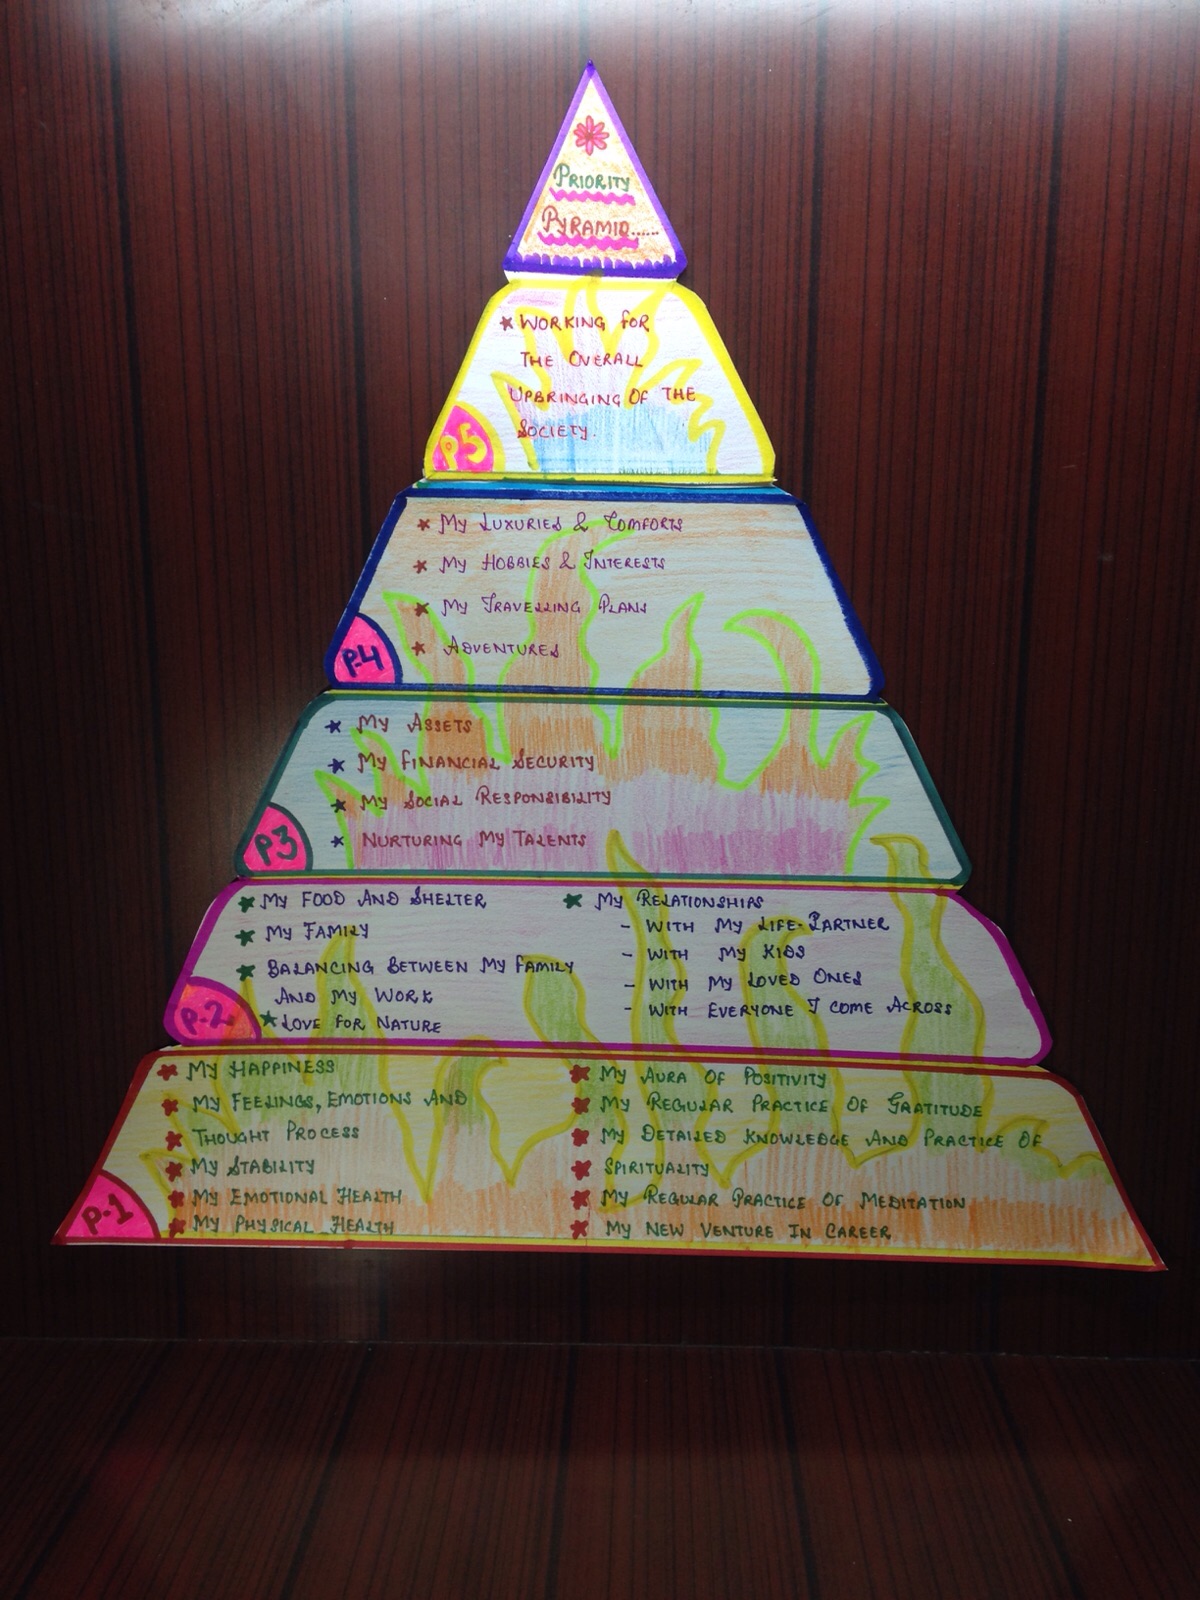 PRIORITY
PYRAMID......
WORKING FOR
THE OVERALL
UPBRINGING OF THE
SOCIETY.
P5
MY LUXURIES & COMFORTS
MY HOBBIES & INTERESTS
MY TRAVELLING PLANS
ADVENTURES
P-4
MY ASSETS
MY FINANCIAL SECURITY
MY SOCIAL RESPONSIBILITY
NURTURING MY TALENTS
P3
MY FOOD AND SHELTER
MY FAMILY
BALANCING BETWEEN MY FAMILY
AND MY WORK
LOVE FOR NATURE
MY RELATIONSHIPS
- WITH MY LIFE-PARTNER
- WITH MY KIDS
- WITH MY LOVED ONES
- WITH EVERYONE I COME ACROSS
P-2
MY HAPPINESS
MY FEELINGS, EMOTIONS AND
THOUGHT PROCESS
MY STABILITY
MY EMOTIONAL HEALTH
MY PHYSICAL HEALTH
MY AURA OF POSITIVITY
MY REGULAR PRACTICE OF GRATITUDE
MY DETAILED KNOWLEDGE AND PRACTICE OF
SPIRITUALITY
MY REGULAR PRACTICE OF MEDITATION
MY NEW VENTURE IN CAREER
P-1